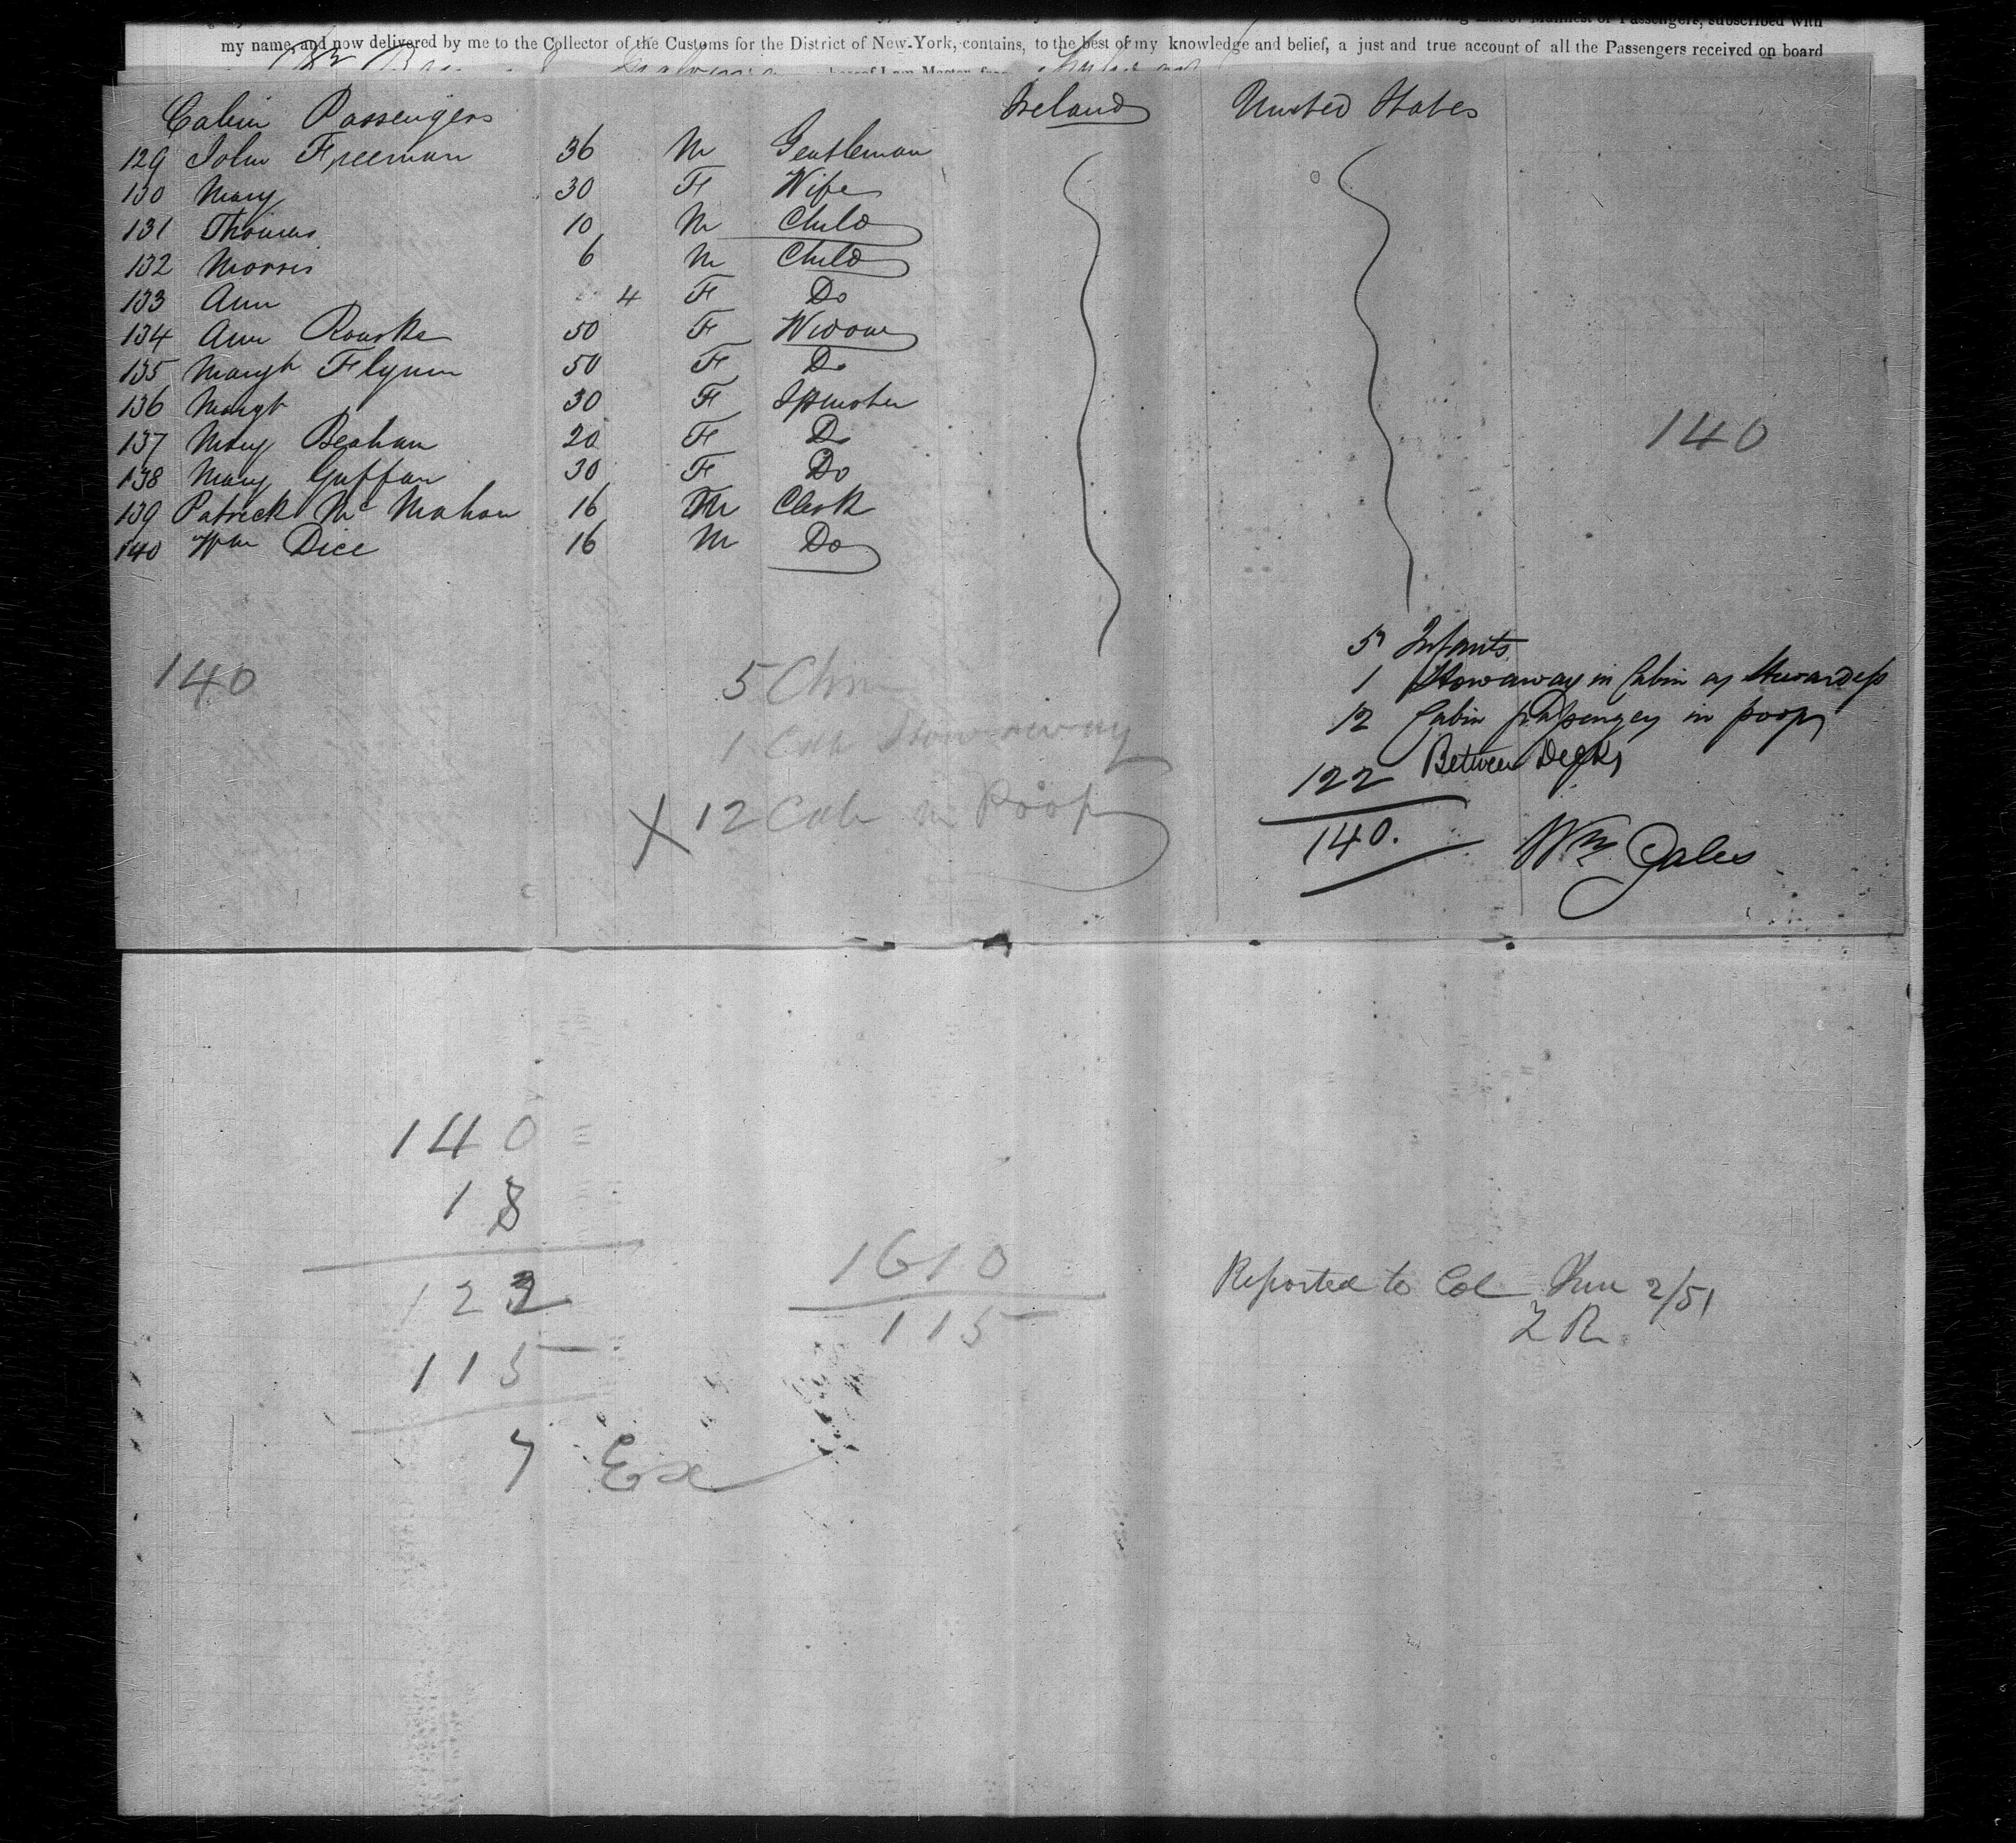 the following List or Manifest of Passengers, subscribed with
my name, and now delivered by me to the Collector of the Customs for the District of New-York, contains, to the best of my knowledge and belief, a just and true account of all the Passengers received on board
whereof I am Master, from
Cabin Passengers Ireland United States
129 John Freeman 36 M Gentleman
130 Mary 30 F Wife
131 Thomas 10 M Child
132 Morris 6 M Child
133 Ann 4 F Do
134 Ann Rourke 50 F Widow
135 Margt Flynn 50 F Do
136 Margt 30 F Spinster
137 Mary Beahan 20 F Do
138 Mary Guffan 30 F Do
139 Patrick Mc Mahon 16 M Clerk
140 Wm Dice 16 M Do
140
140
5 Chn
1 Cab Stowaway
X 12 Cab in Poop
5 Infants
1 Stowaway in Cabin as Stewardess
12 Cabin passengers in poop
122 Between Decks
140.
Wm Gales
140
18
122
115
7 Ex
1610
115
Reported to Col Jun 2/51